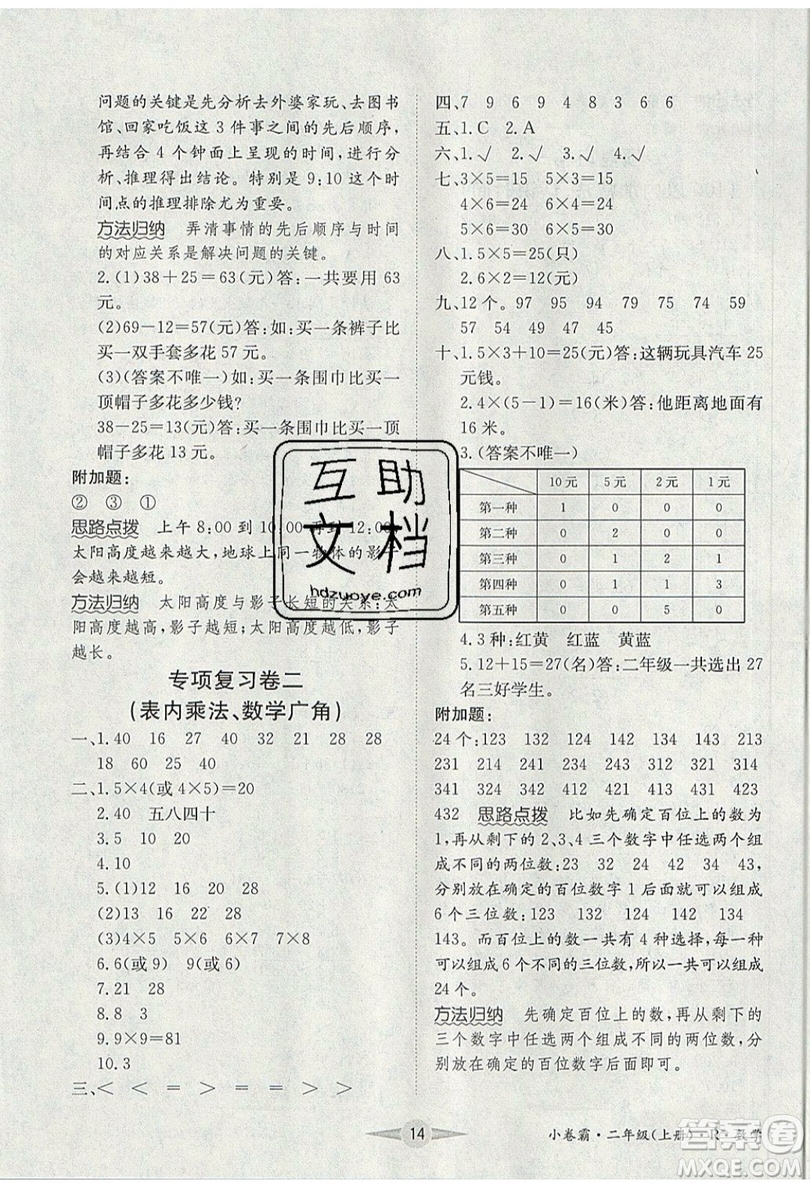 问题的关键是先分析去外婆家玩、去图书
馆、回家吃饭这 3 件事之间的先后顺序,
再结合 4 个钟面上呈现的时间,进行分
析、推理得出结论。特别是 9:10 这个时
间点的推理排除尤为重要。
方法归纳 弄清事情的先后顺序与时间
的对应关系是解决问题的关键。
2.(1)38+25=63(元)答:一共要用 63
元。
(2)69-12=57(元)答:如:买一条裤子比
买一双手套多花 57 元。
(3)(答案不唯一)如:买一条围巾比买一
顶帽子多花多少钱?
38-25=13(元)答:买一条围巾比买一顶
帽子多花 13 元。
附加题:
② ③ ①
思路点拨 上午 8:00 到 10:00 再到 12:00
太阳高度越来越大,地球上同一物体的影子
会越来越短。
方法归纳 太阳高度与影子长短的关系:太
阳高度越高,影子越短;太阳高度越低,影子
越长。
专项复习卷二
(表内乘法、数学广角)
一、1.40 16 27 40 32 21 28 28
18 60 25 40
二、1.5×4(或 4×5)=20
2.40 五八四十
3.5 10
4.10
5.(1)12 16 20 28
(2)13 16 19 28
(3)4×5 5×6 7×8
6.6(或 9) 9(或 6)
7.21 28
8.8 3
9.9×9=81
10.3
三、< < = > = = > >
四、7 9 6 9 4 8 3 6 6
五、1.C 2.A
六、1.√ 2.√ 3.√ 4.√
七、3×5=15 5×5=25
4×6=24 6×6=36
5×6=30 6×5=30
八、1.5×5=25(只)
2.6×2=12(元)
九、12 个。97 95 94 75 74 59
57 54 49 47 45
十、1.5×3+10=25(元)答:这辆玩具汽车 25
元钱。
2.4×(5-1)=16(米)答:他距离地面有
16 米。
3.(答案不唯一)
10 元 5 元 2 元 1 元
第一种 1 0 0 0
第二种 0 2 0 0
第三种 0 1 2 1
第四种 0 1 1 3
第五种 0 0 5 0
4.3 种:红黄 红蓝 黄蓝
5.12+15=27(名)答:二年级一共选出 27
名三好学生。
附加题:
24 个:123 132 124 142 134 143 213
231 214 241 234 243 312 321 314
341 324 342 412 421 413 431 423
432 思路点拨 比如先确定百位上的数为
1,再从剩下的 2、3、4 三个数字中任选两个组
成不同的两位数:23 32 24 42 34 43,
分别放在确定的百位数字 1 后面就可以组成
6 个三位数:123 132 124 142 134
143。而百位数一共有 4 种选择,每一种
可以组成 6 个三位数,所以一共可以组成
24 个。
方法归纳 先确定百位上的数,再从剩下的
三个数字中任选两个组成不同的两位数,分
别放在确定的百位数字后面即可。
14
小卷霸·二年级(上册)·R·数学
互助
文档
hdzuoye.com
作业答案
MXQE.COM